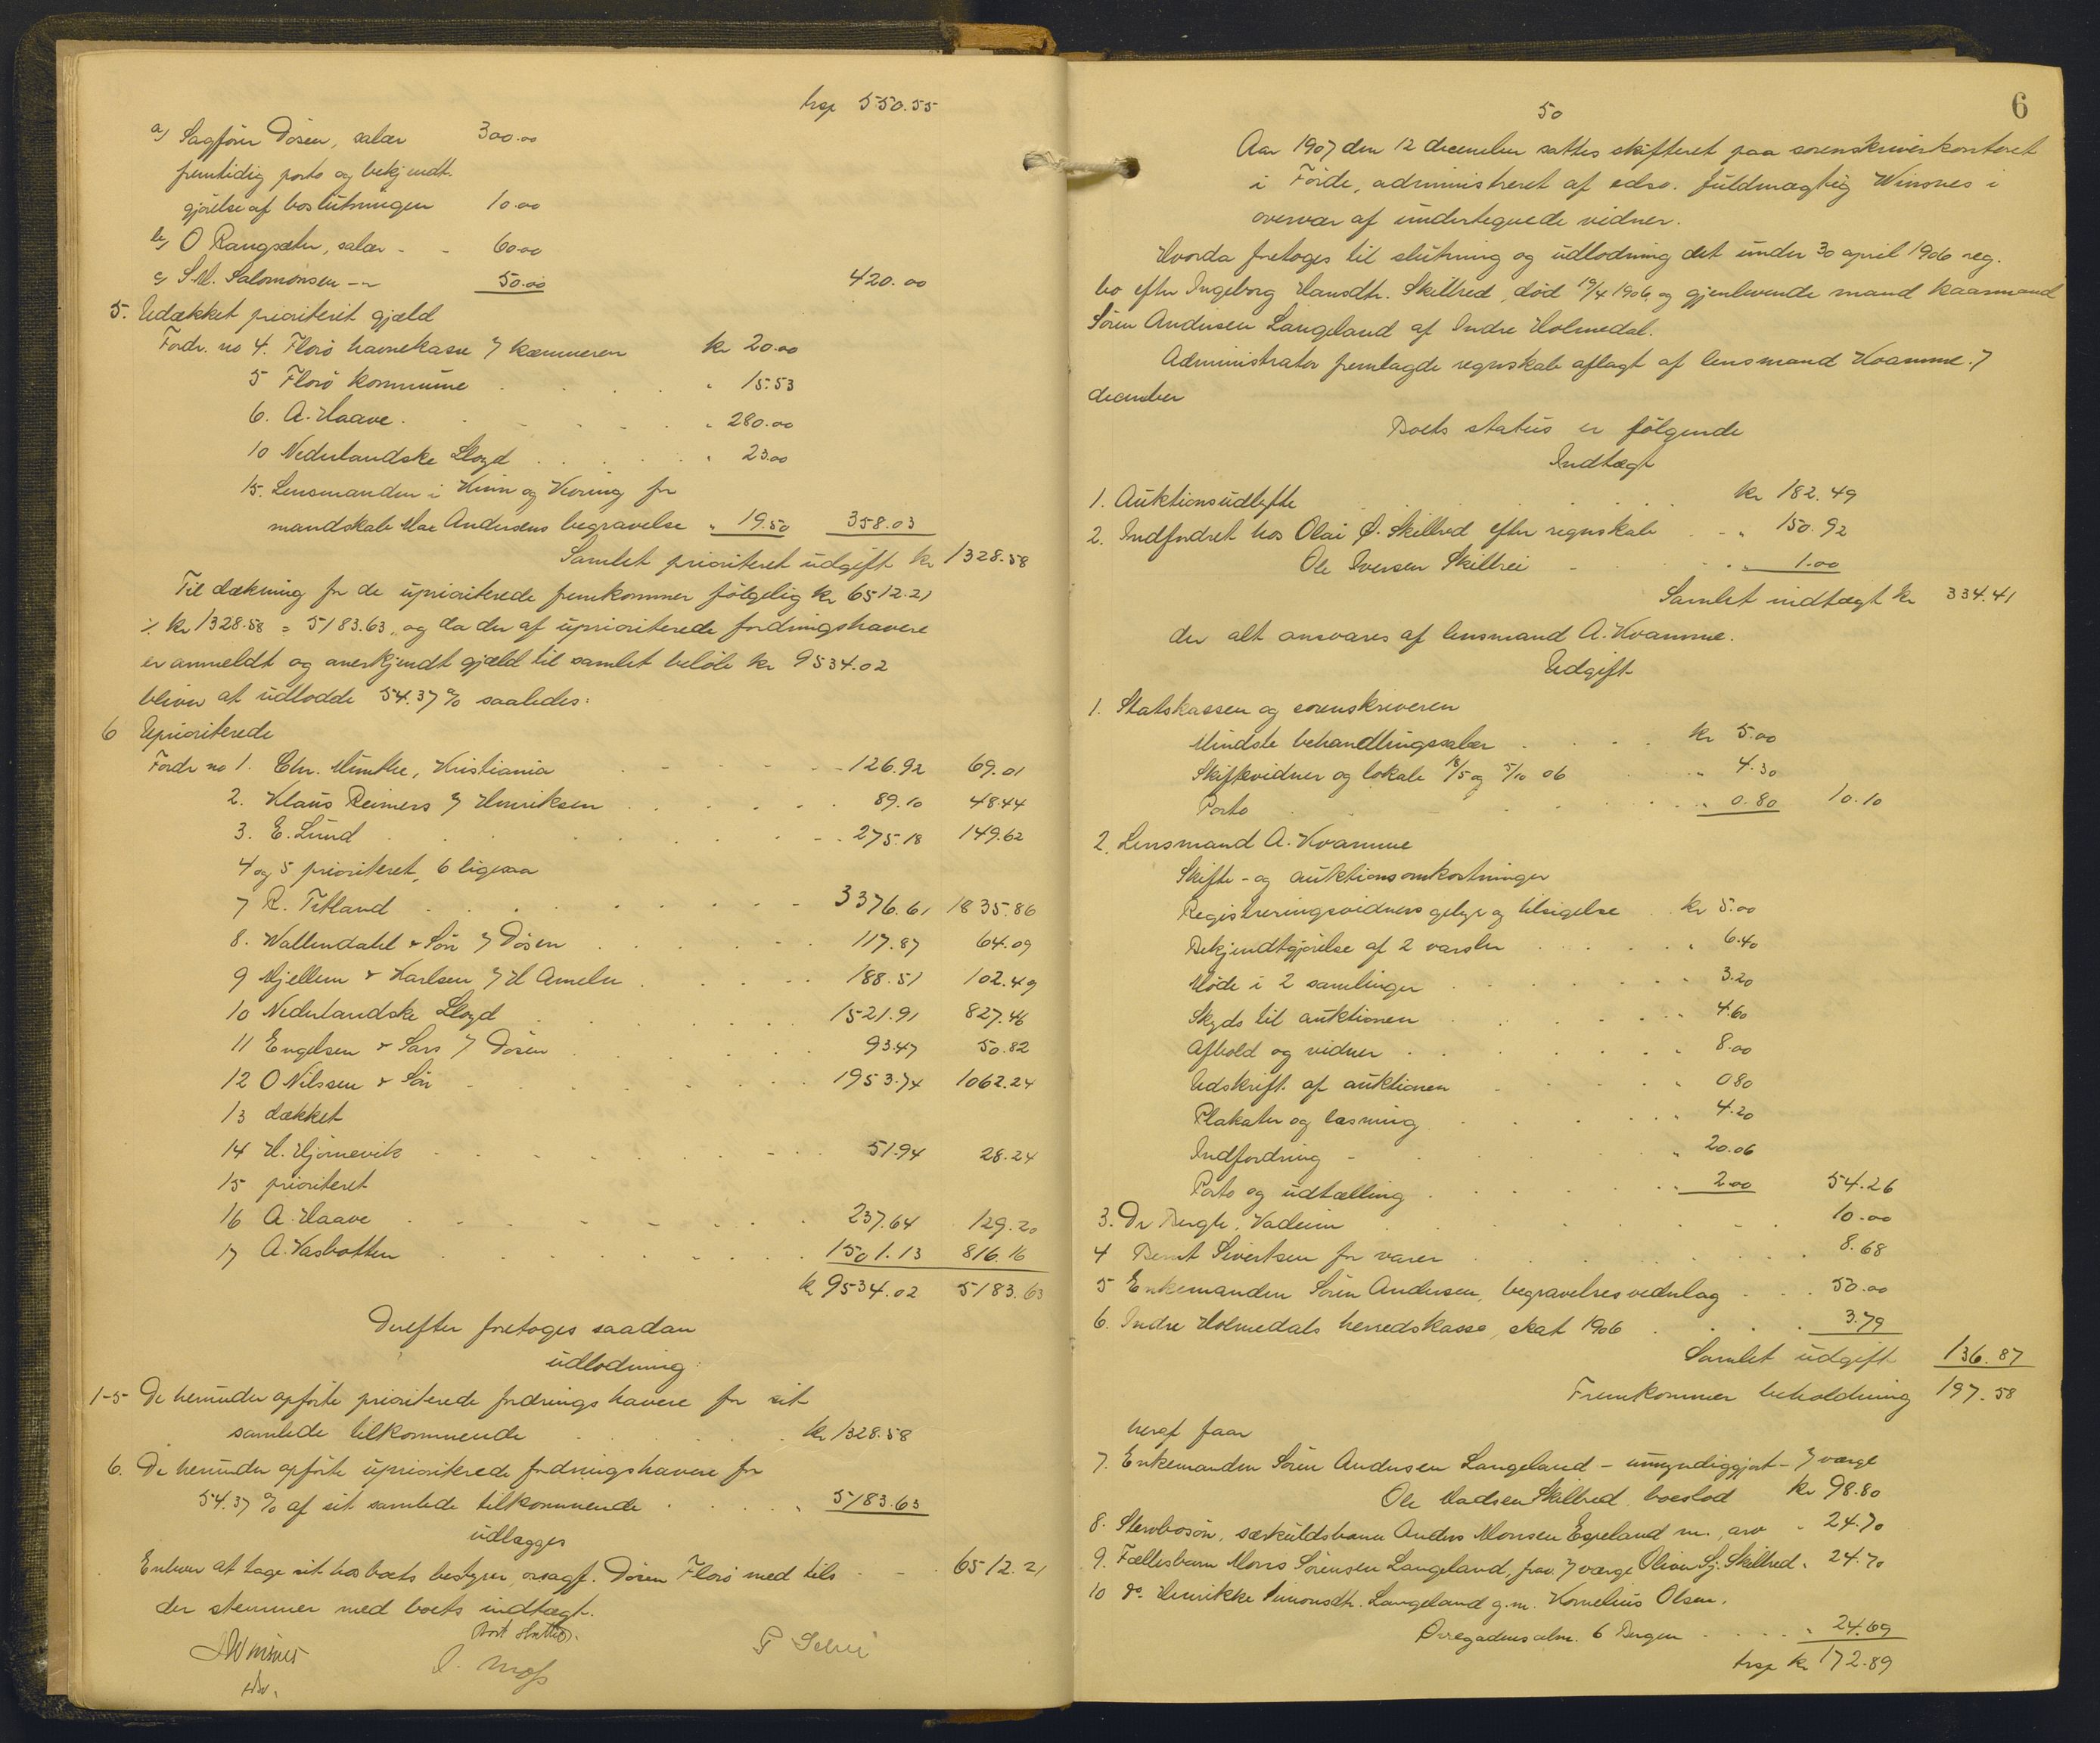 trsp 550.55
a) Sagfører Døsen, salær 300.00
fremtidig porto og bekjendt-
gjørelse af boslutningen 10.00
b) O Rangsæter, salær - - 60.00
c) S M. Salomonsen -"- 50.00 420.00
5. Udækket prioritert gjæld
Fordr. no 4. Florø havnekasse v kæmneren kr 20.00
5 Florø kommune " 15.53
6. A. Haave " 280.00
10 Nederlandske Lloyd " 23.00
15. Lensmanden i Kinn og Vevring for
mandskab Mae Andersens begravelse " 19.50 358.03
Samlet prioriteret udgift kr 1328.58
Til dækning for de uprioriterede fremkommer følgelig kr 6512.21
÷ kr 1328.58 = 5183.63, og da der af uprioriterede fordringshavere
er anmeldt og anerkjendt gjæld til samlet beløb kr 9534.02
bliver at udlodde 54.37 % saaledes:
6 Uprioriterede
Fordr no 1. Chr. Munthe, Kristiania 126.92 69.01
2. Klaus Reimers v Henriksen 89.10 48.44
3. E. Lund 275.18 149.62
4 og 5 prioriteret, 6 ligesaa
7 R. Titland 3376.61 1835.86
8. Wallendahl & Søn v Døsen 117.87 64.09
9 Mjellem & Karlsen v H Ameln 188.51 102.49
10 Nederlandske Lloyd 1521.91 827.46
11 Engelsen & Sars v Døsen 93.47 50.82
12 O Nilssen & Søn 1953.74 1062.24
13 dækket
14 H. Hjørnevik 51.94 28.24
15 prioriteret
16 A. Haave 237.64 129.20
17 A. Vasbotten 1501.13 816.16
kr 9534.02 5183.63
Derefter foretoges saadan
udlodning:
1-5 De herunder opførte prioriterede fordringshavere for sit
samlede tilkommende kr 1328.58
6. De herunder opførte uprioriterede fordringshavere for
54.37 % af sit samlede tilkommende " 5183.63
udlægges
Enhver at tage sit hos boets bestyrer, orsagf. Døsen Florø med tils - - 6512.21
der stemmer med boets indtægt.
Bort sluttet.
Winsnes
edsv.
J. Moss
P Selvi
50
6
Aar 1907 den 12 december sattes skifteret paa sorenskriverkontoret
i Førde, administreret af edsv. fuldmægtig Winsnes i
overvær af undertegnede vidner.
Hvorda foretoges til slutning og udlodning det under 30 april 1906 reg.
bo efter Ingeborg Hansdtr. Skilbred, død 19/4 1906, og gjenlevende mand kaarmand
Søren Andersen Langeland af Indre Holmedal.
Administrator fremlagde regnskab aflagt af lensmand Kvamme 7
december
Boets status er følgende
Indtægt
1. Auktionsudbytte kr 182.49
2. Indfordret hos Olai Ø. Skilbred efter regnskab " 150.92
Ole Iversen Skilbrei " 1.00
Samlet indtægt kr 334.41
der alt ansvares af lensmand A. Kvamme.
Udgift
1. Statskassen og sorenskriveren
Mindste behandlingssalær kr 5.00
Skiftevidner og lokale 18/5 og 5/10 06 " 4.30
Porto " 0.80 10.10
2. Lensmand A. Kvamme
Skifte- og auktionsomkostninger
Registreringsvidners gebyr og tilsigelse kr 5.00
Bekjendtgjørelse af 2 varsler " 6.40
Møde i 2 samlinger " 3.20
Skyds til auktionen " 4.60
Afhold og vidner " 8.00
Udskrift af auktionen " 080
Plakater og læsning " 4.20
Indfordring " 20.06
Porto og udtælling " 2.00 54.26
3. Dr Bergh, Vadheim 10.00
4 Bernt Sivertsen for varer 8.68
5 Enkemanden Søren Andersen, begravelsesvederlag 50.00
6. Indre Holmedals herredskasse, skat 1906 3.79
Samlet udgift 136.87
Fremkommer beholdning 197.58
heraf faar
7. Enkemanden Søren Andersen Langeland - umyndiggjort - v verge
Ole Madsen Skilbred boeslod kr 98.80
8. Stervbosøn, særkuldsbarn Anders Monsen Espeland m., arv " 24.70
9. Fællesbarn Mons Sørensen Langeland, frav. v værge Oliver Sj. Skilbred " 24.70
10 do. Henrikke Simonsdtr. Langeland g.m. Kornelius Olsen,
Øvregadens alm. 6 Bergen " 24.69
trsp kr 172.89